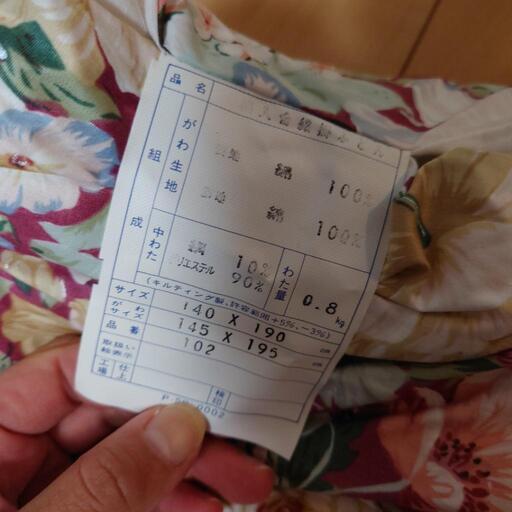 品名
組成
がわ生地
綿 100%
綿 100%
中わた
10%
ポリエステル 90%
わた量
0.8kg
(キルティング製、許容範囲+5%,−3%)
サイズ 140 X 190 cm
がわサイズ 145 X 195 cm
品番 102
取扱い絵表示
工場
仕上
検印